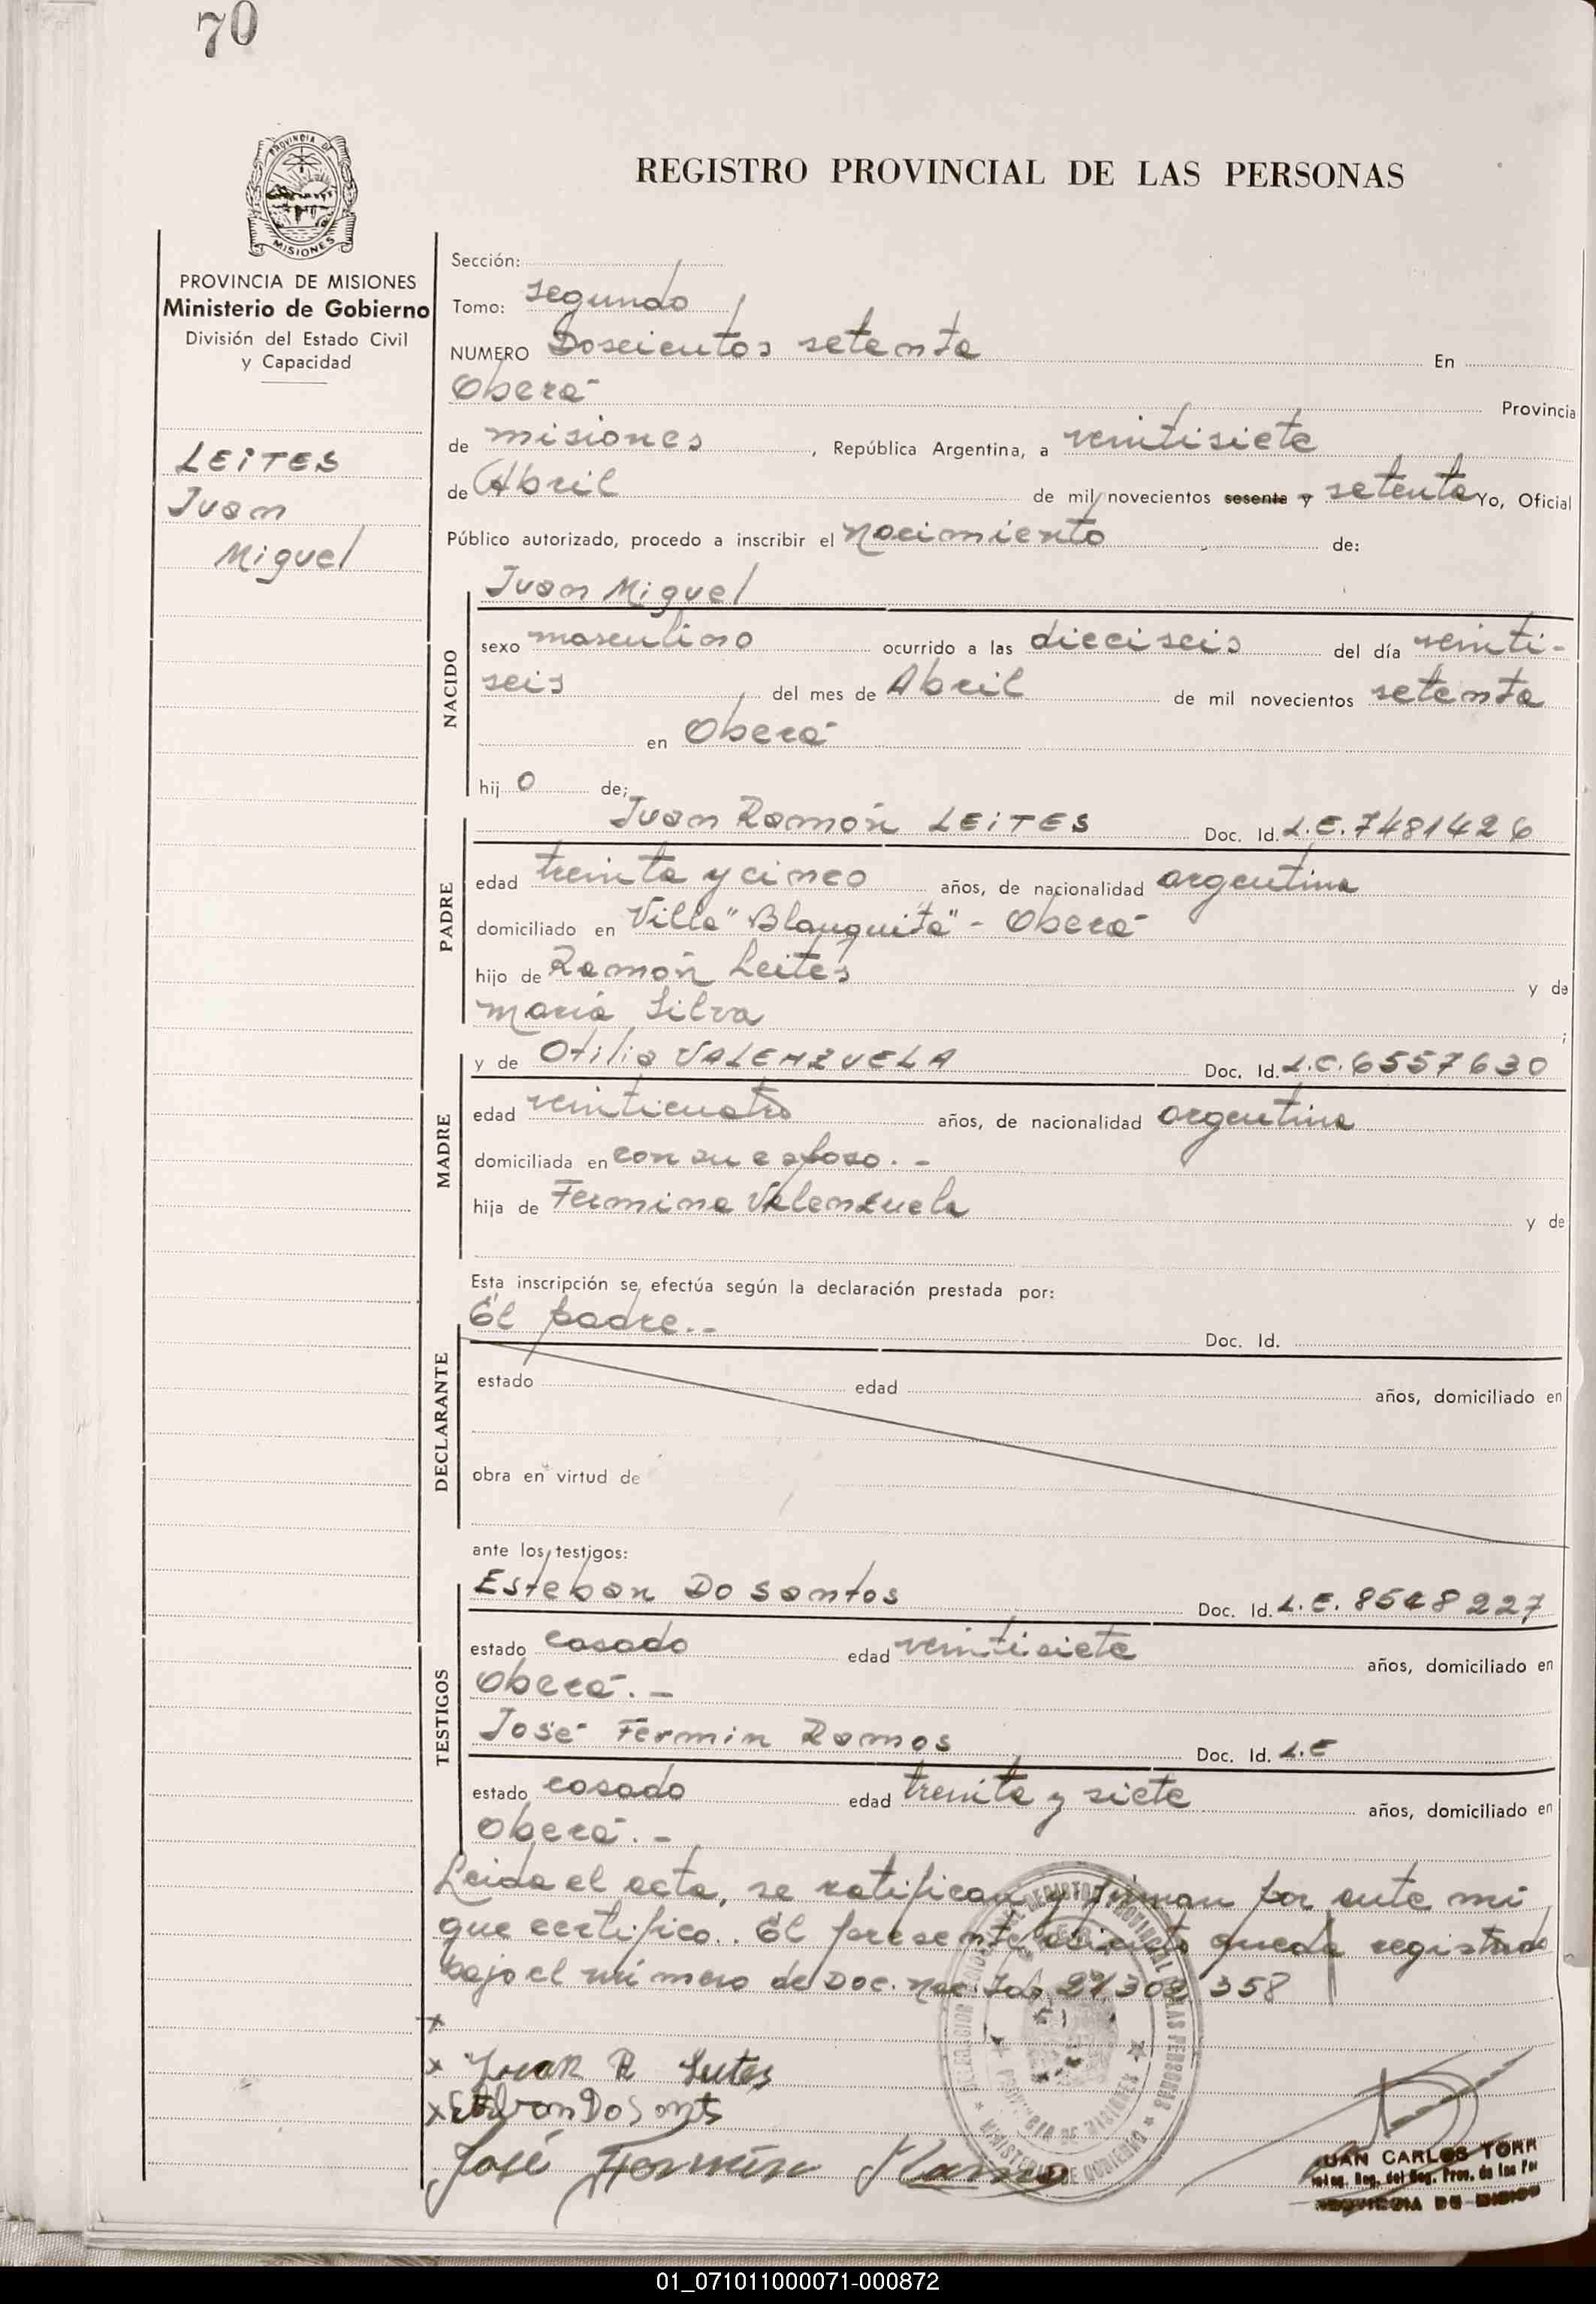 70
PROVINCIA DE
MISIONES
REGISTRO PROVINCIAL DE LAS PERSONAS
PROVINCIA DE MISIONES
Ministerio de Gobierno
División del Estado Civil
y Capacidad
LEITES
Juan
Miguel
Sección:
Tomo: segundo
NUMERO Doscientos setenta En
Oberá Provincia
de misiones, República Argentina, a veintisiete
de Abril de mil novecientos sesenta y setenta Yo, Oficial
Público autorizado, procedo a inscribir el Nacimiento de:
NACIDO
Juan Miguel
sexo masculino ocurrido a las dieciseis del día veinti-
seis del mes de Abril de mil novecientos setenta
en Oberá
hijo de;
PADRE
Juan Ramón LEITES Doc. Id. L.E. 7481426
edad treinta y cinco años, de nacionalidad argentina
domiciliado en Villa "Blanquita" - Oberá
hijo de Ramón Leites y de
María Silva ;
MADRE
y de Otilia VALENZUELA Doc. Id. L.C. 6557630
edad veinticuatro años, de nacionalidad argentina
domiciliada en con su esposo. -
hija de Fermina Valenzuela y de
Esta inscripción se efectúa según la declaración prestada por:
DECLARANTE
El padre.- Doc. Id.
estado edad años, domiciliado en
obra en virtud de
ante los testigos:
TESTIGOS
Esteban Do Santos Doc. Id. L.E. 8548227
estado casado edad veintisiete años, domiciliado en
Oberá. -
José Fermin Ramos Doc. Id. L.E
estado casado edad treinta y siete años, domiciliado en
Oberá. -
Leida el acta, se ratifican y firman por ante mi
que certifico.. El presente asiento queda registrado
bajo el número de Doc. Nac. Id. 21 302 358
+
x Juan R Leites
x Esteban Do Sants
José Fermín Ramos
JUAN CARLOS TORR
PROVINCIA DE MISION
01_071011000071-000872